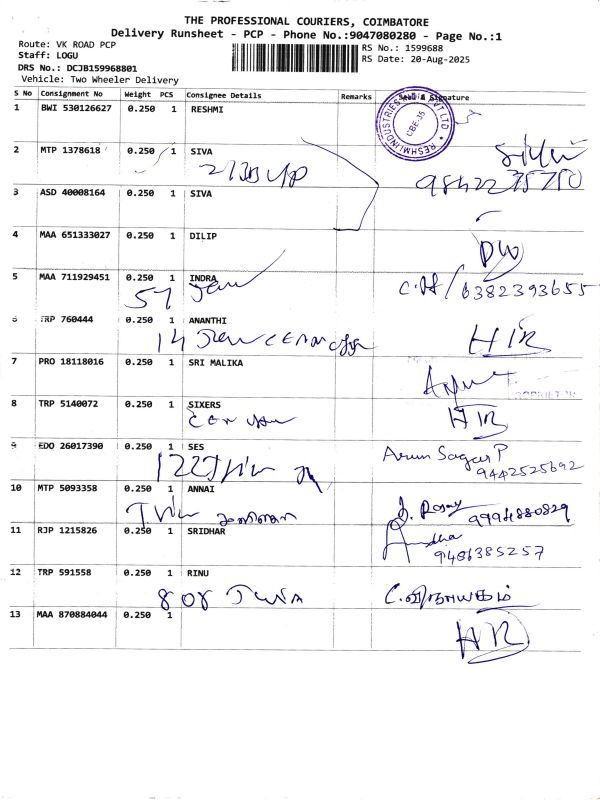 THE PROFESSIONAL COURIERS, COIMBATORE
Delivery Runsheet - PCP - Phone No.:9047080280 - Page No.:1
Route: VK ROAD PCP
Staff: LOGU
DRS No.: DCJB159968801
Vehicle: Two Wheeler Delivery
RS No.: 1599688
RS Date: 20-Aug-2025
S No Consignment No Weight PCS Consignee Details Remarks Seal & Signature
1 BWI 530126627 0.250 1 RESHMI
RESHMI INDUSTRIES PVT LTD
CBE-35
2 MTP 1378618 0.250 1 SIVA
9842275750
3 ASD 40008164 0.250 1 SIVA
4 MAA 651333027 0.250 1 DILIP
5 MAA 711929451 0.250 1 INDRA
57
6382393655
6 TRP 760444 0.250 1 ANANTHI
14
HR
7 PRO 18118016 0.250 1 SRI MALIKA
8 TRP 5140072 0.250 1 SIXERS
HR
9 EDO 26017390 0.250 1 SES
Arun Sagar P
9442525692
10 MTP 5093358 0.250 1 ANNAI
9994880829
11 RJP 1215826 0.250 1 SRIDHAR
9486385257
12 TRP 591558 0.250 1 RINU
808
C. விநாயகம்
13 MAA 870884044 0.250 1
HR